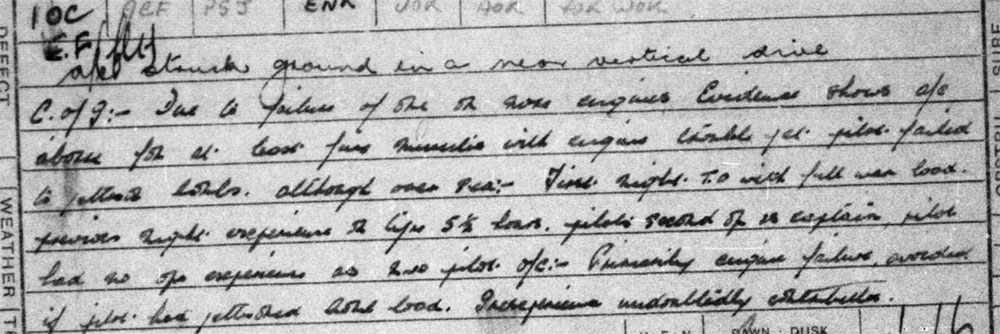 10C ACF PSJ ENR
E.F.
a/c struck ground in a near vertical drive
C. of I:- Due to failure of one or more engines Evidence shows a/c
above for at least five minutes with engine trouble yet pilot failed
to jettison bombs. although over sea:- First night T.O with full war load.
previous night experience on type 5½ hours. pilots second op as captain, pilot
had no ops experience as 2nd pilot. o/c:- Primarily engine failure, avoided
if pilot had jettisoned bomb load. Inexperience undoubtedly contributed.
DEFECT
WEATHER
DAWN DUSK